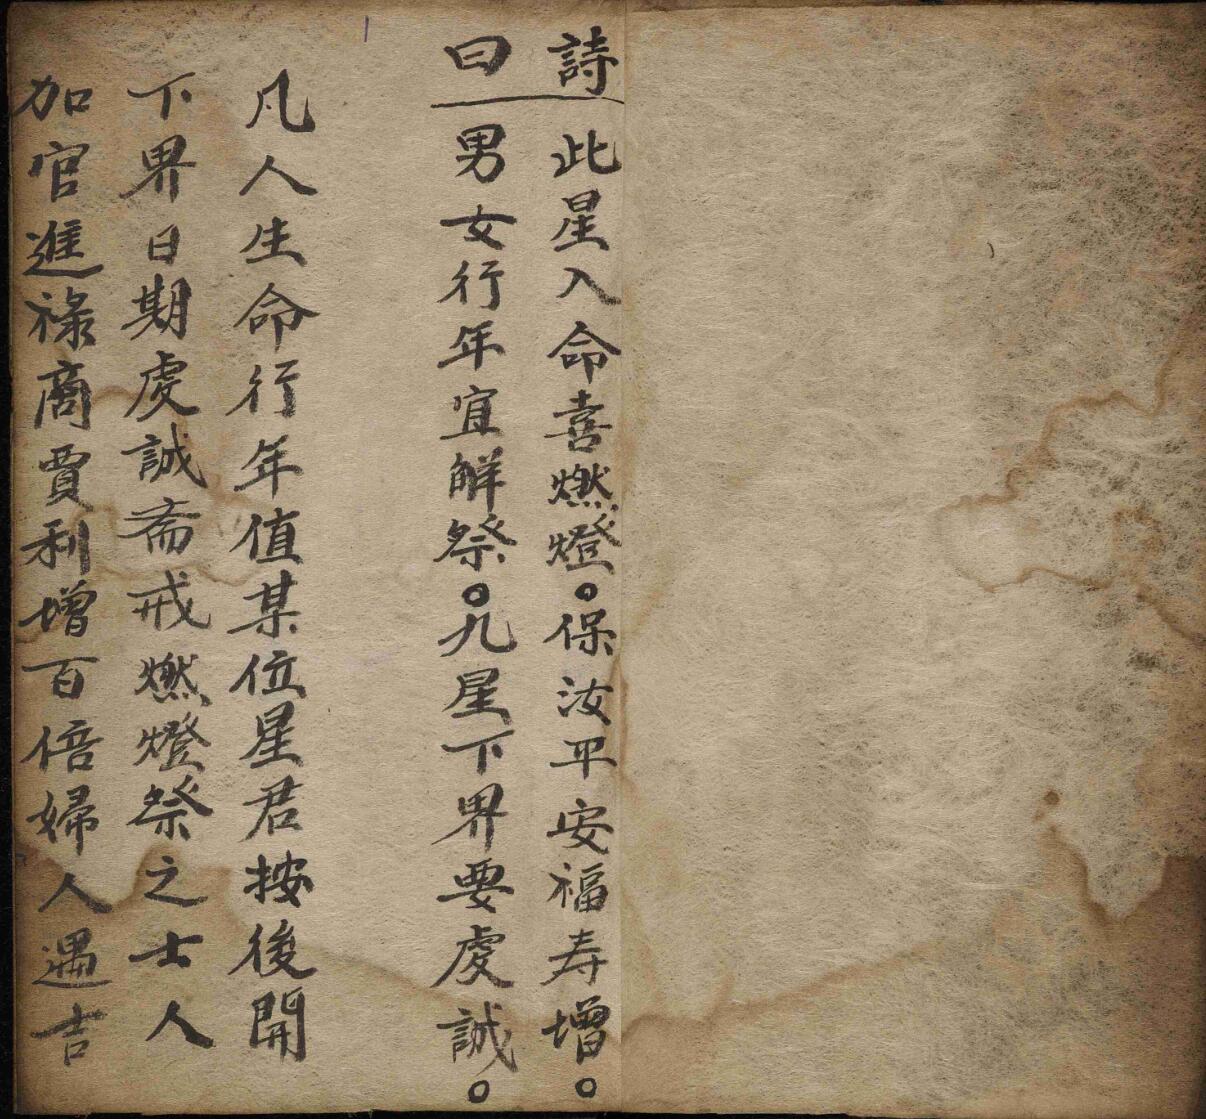 詩此星入命喜燃燈。保汝平安福寿增。
曰男女行年宜觧祭。九星下界要虔誠。
凡人生命行年值某位星君按後開
下界日期虔誠斋戒燃燈祭之士人
加官進祿商賈利增百倍婦人遇吉